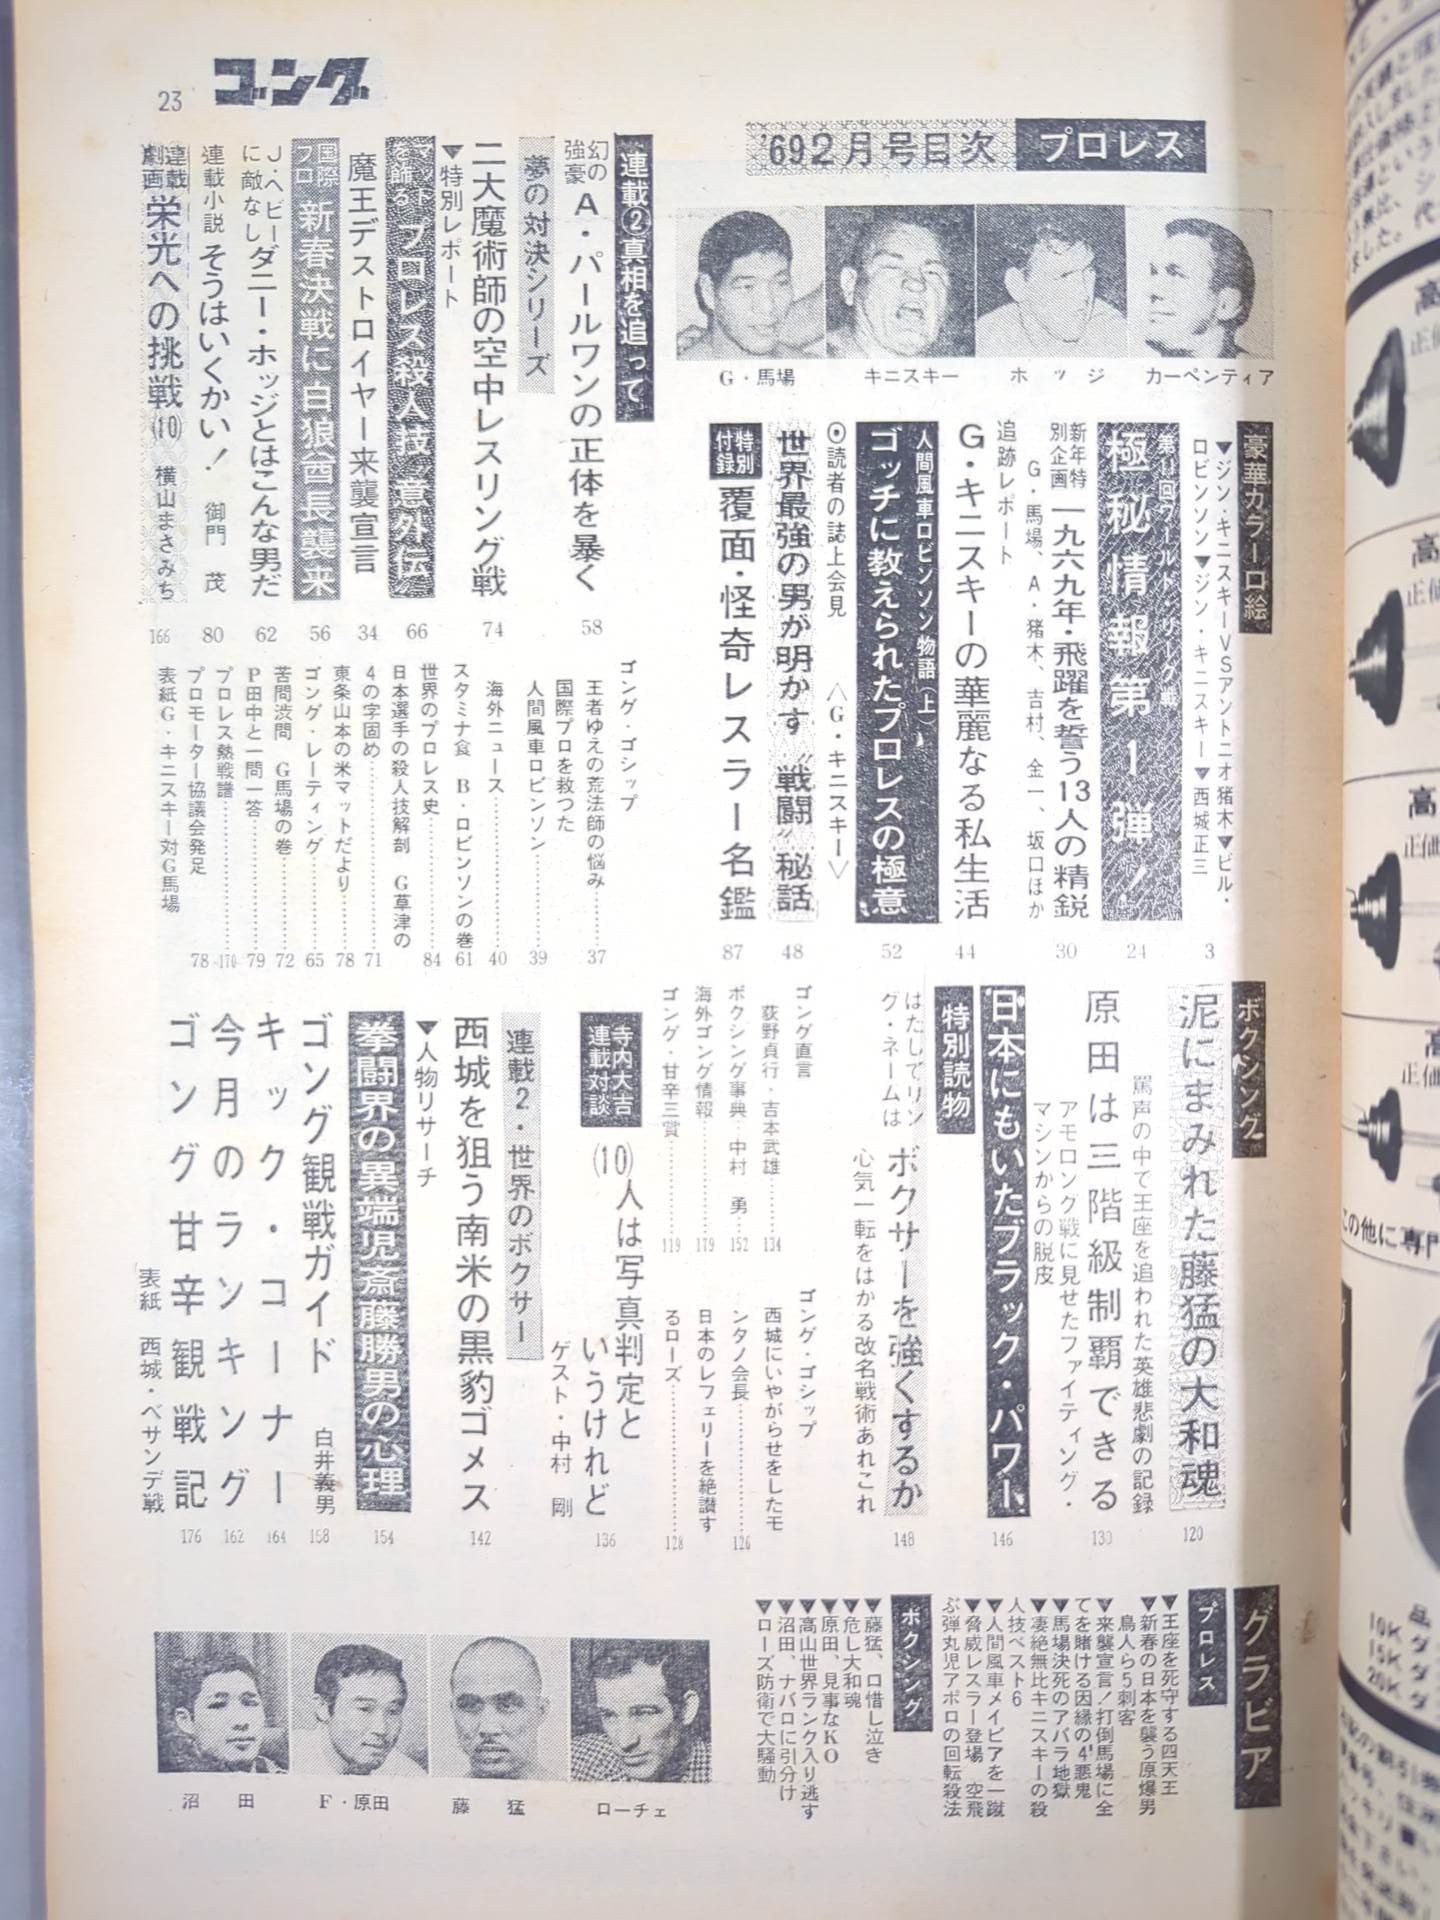 ゴング
23
'69 2月号目次 プロレス
G・馬場
キニスキー
ホッジ
カーペンティア
豪華カラー口絵
▼ジン・キニスキーVSアントニオ猪木▼ビル・
ロビンソン▼ジン・キニスキー▼西城正三
3
第11回ワールド・リーグ戦
極秘情報第1弾!
24
新年特別企画
一九六九年・飛躍を誓う13人の精鋭
G・馬場、A・猪木、吉村、金一、坂口ほか
30
追跡レポート
G・キニスキーの華麗なる私生活
44
人間風車ロビンソン物語(上)
ゴッチに教えられたプロレスの極意
52
◎読者の誌上会見 〈G・キニスキー〉
世界最強の男が明かす〝戦闘〟秘話
48
特別付録
覆面・怪奇レスラー名鑑
87
連載②真相を追って
幻の強豪
A・パールワンの正体を暴く
58
夢の対決シリーズ
二大魔術師の空中レスリング戦
74
▼特別レポート
マットを飾る プロレス殺人技・意外伝
66
魔王デストロイヤー来襲宣言
34
国際プロ
新春決戦に白狼酋長襲来
56
J・ヘビーに敵なし
ダニー・ホッジとはこんな男だ
62
連載小説 そうはいくかい! 御門 茂
80
連載劇画
栄光への挑戦(10) 横山まさみち
166
ゴング・ゴシップ
王者ゆえの荒法師の悩み……37
国際プロを救つた
人間風車ロビンソン……39
海外ニュース……40
スタミナ食 B・ロビンソンの巻 61
世界のプロレス史……84
日本選手の殺人技解剖 G草津の
4の字固め……71
東条山本の米マットだより……78
ゴング・レーティング……65
苦問渋問 G馬場の巻……72
P田中と一問一答……79
プロレス熱戦譜……170
プロモーター協議会発足 78
表紙G・キニスキー対G馬場
ボクシング
泥にまみれた藤猛の大和魂
罵声の中で王座を追われた英雄悲劇の記録
120
原田は三階級制覇できる
アモロング戦に見せたファイティング・
マシンからの脱皮
130
日本にもいたブラック・パワー
146
特別読物
はたしてリング・ネームは
ボクサーを強くするか
心気一転をはかる改名戦術あれこれ
148
ゴング直言
荻野貞行・吉本武雄……134
ボクシング事典・中村 勇……152
海外ゴング情報……179
ゴング・甘辛三賞……119
ゴング・ゴシップ
西城にいやがらせをしたモ
ンタノ会長……126
日本のレフェリーを絶讃す
るローズ……128
寺内大吉連載対談
(10)人は写真判定と
いうけれど
ゲスト・中村 剛
136
連載2・世界のボクサー
西城を狙う南米の黒豹ゴメス
142
▼人物リサーチ
拳闘界の異端児斎藤勝男の心理
154
ゴング観戦ガイド 白井義男
158
キック・コーナー
164
今月のランキング
162
ゴング甘辛観戦記
176
表紙 西城・ベサンデ戦
グラビア
プロレス
▼王座を死守する四天王
▼新春の日本を襲う原爆男
鳥人ら5刺客
▼来襲宣言!打倒馬場に全
てを賭ける因縁の4悪鬼
▼馬場決死のアバラ地獄
▼凄絶無比キニスキーの殺
人技ベスト6
▼人間風車メイビアを一蹴
▼脅威レスラー登場 空飛
ぶ弾丸児アポロの回転殺法
ボクシング
▼藤猛、口惜し泣き
▼危し大和魂
▼原田、見事なKO
▼高山世界ランク入り逃す
▼沼田、ナバロに引分け
▼ローズ防衛で大騒動
沼田
F・原田
藤猛
ローチェ
この他に専門
10K
15K
20K